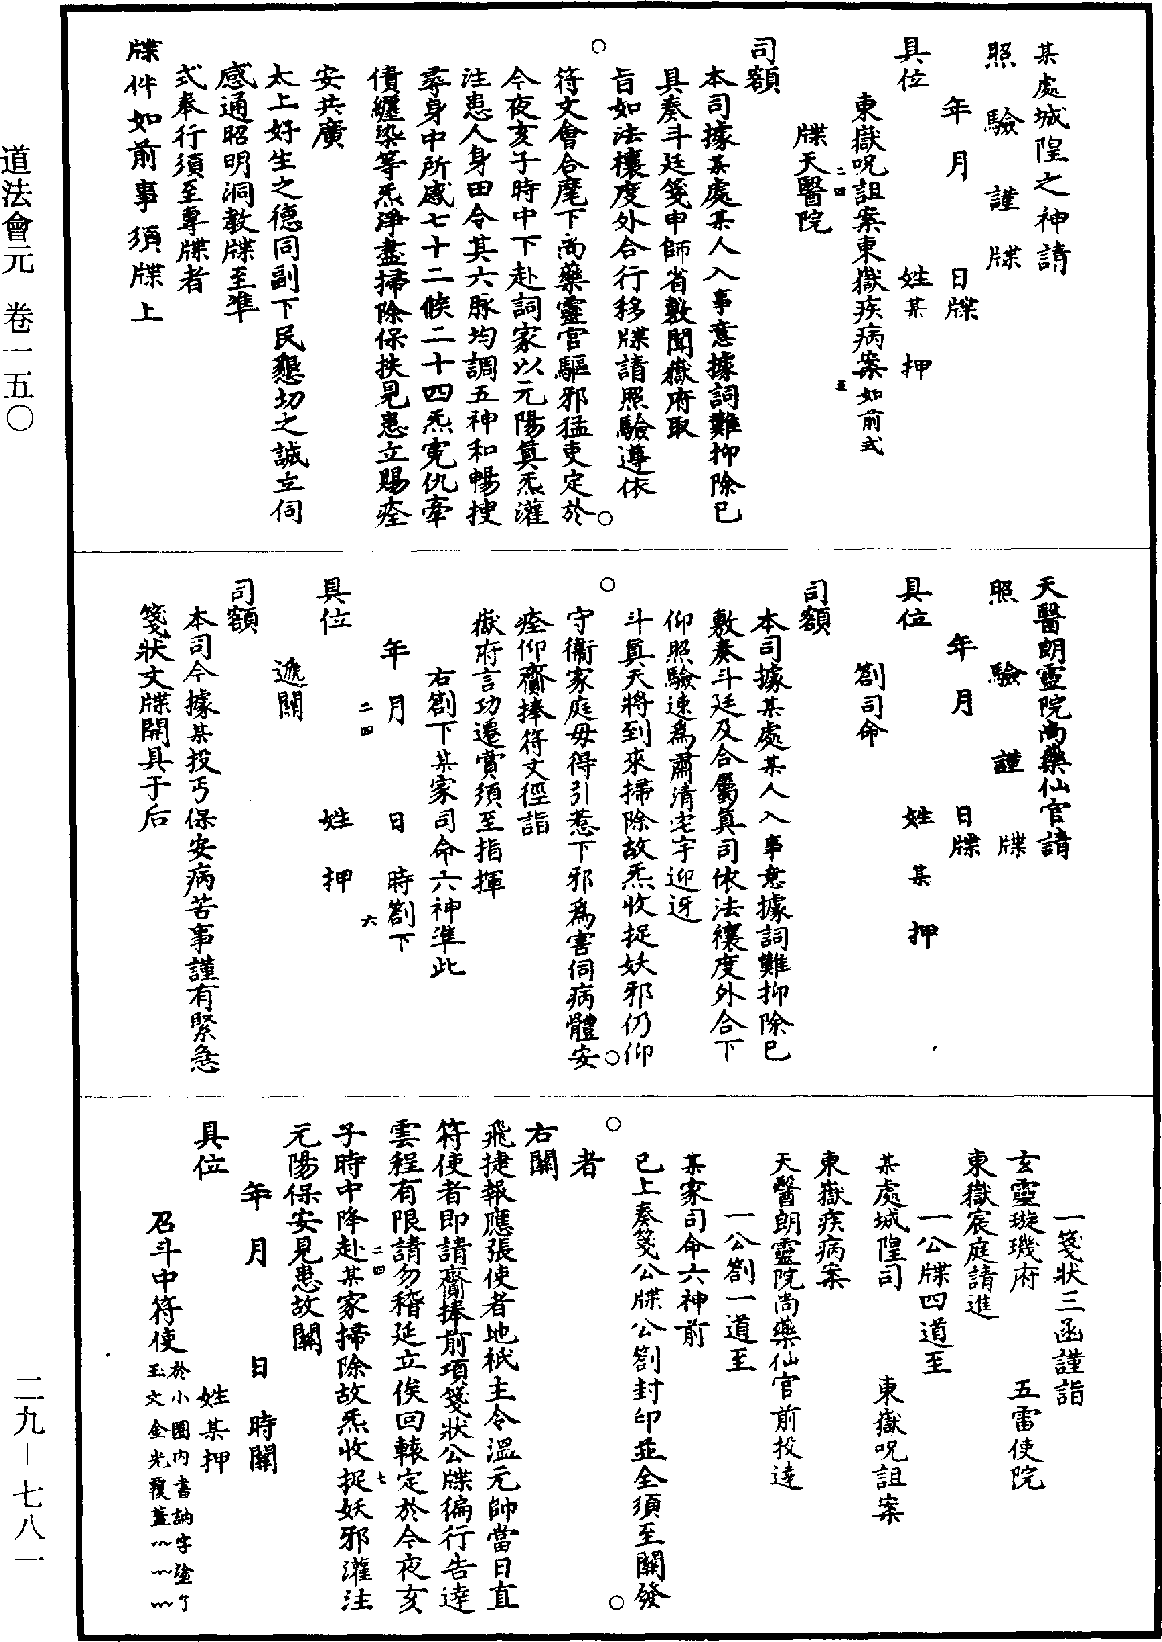 某處城隍之神請
照驗謹牒
年月日牒
具位姓某押
東嶽呪詛案東嶽疾病案如前式
牒天醫院
司額
本司據某處某人入事意據詞難抑除已
具奏斗廷箋申師省敷聞嶽府取
旨如法禳度外合行移牒請照驗遵依
符文會合麾下尚藥靈官驅邪猛吏定於
今夜亥子時中下赴詞家以元陽真炁灌
注患人身田令其六脉均調五神和暢搜
尋身中所感七十二候二十四炁寃仇牽
債纏染等炁淨盡掃除保扶見患立賜痊
安共廣
太上好生之德同副下民懇切之誠立伺
感通昭明洞敎牒至准
式奉行須至專牒者
牒件如前事須牒上
天醫朗靈院尚藥仙官請
照驗謹牒
年月日牒
具位姓某押
劄司命
司額
本司據某處某人入事意據詞難抑除已
敷奏斗廷及合屬真司依法禳度外合下
仰照驗速爲肅清宅宇迎迓
斗真天將到來掃除故炁收捉妖邪仍仰
守衞家庭毋得引惹下邪爲害伺病體安
痊仰齎捧符文徑詣
嶽府言功遷賞須至指揮
右劄下某家司命六神準此
年月日時劄下
具位姓押
遞關
司額
本司今據某投丐保安病苦事謹有緊急
箋狀文牒開具于后
一箋狀三函謹詣
玄靈璇璣府 五雷使院
東嶽宸庭請進
一公牒四道至
某處城隍司 東嶽呪詛案
東嶽疾病案
天醫朗靈院尚藥仙官前投達
一公劄一道至
某家司命六神前
已上奏箋公牒公劄封印並全須至關發
者
右關
飛捷報應張使者地祇主令溫元帥當日直
符使者即請齎捧前項箋狀公牒徧行告達
雲程有限請勿稽延立俟回轅定於今夜亥
子時中降赴某家掃除故炁收捉妖邪灌注
元陽保安見患故關
年月日時關
具位姓某押
召斗中符使於小圈内書訥字塗了
玉文金光覆蓋
道法會元 卷一五〇
二九—七八一